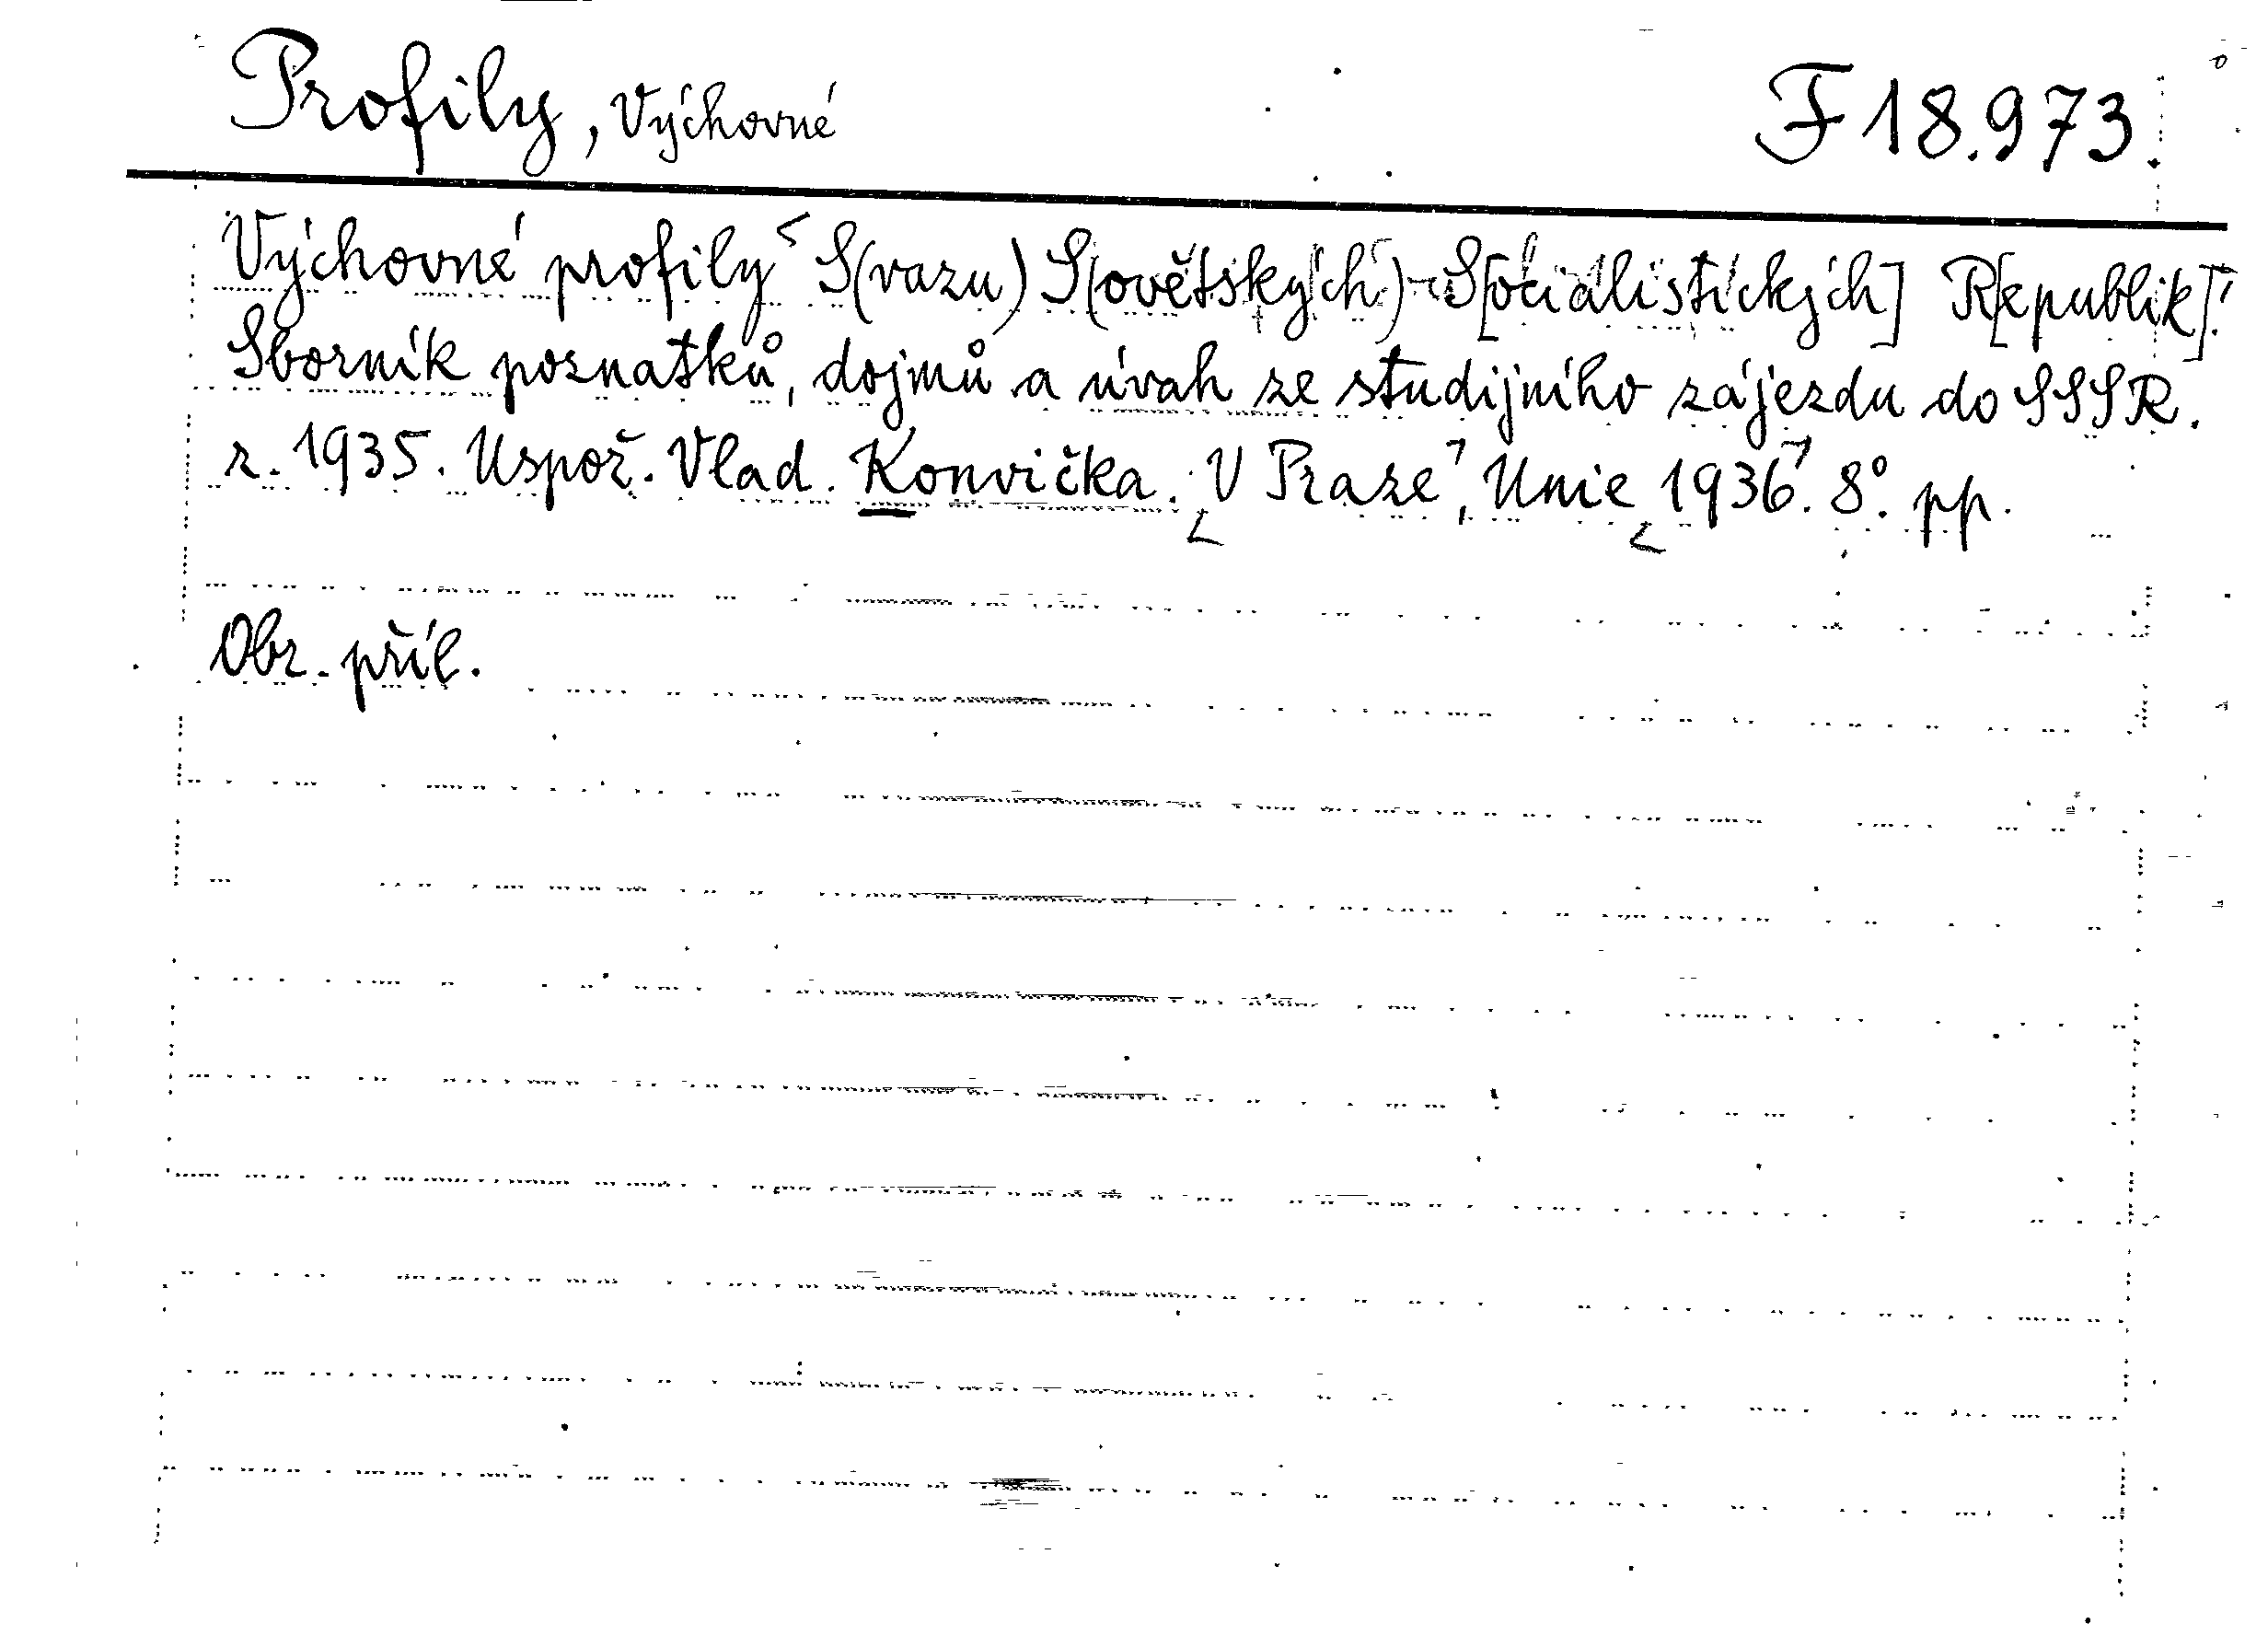 Profily, Výchovné F 18.973.
Výchovné profily S(vazu) S(ovětských) S[ocialistických] R[epublik].
Sborník poznatků, dojmů a úvah ze studijního zájezdu do SSSR.
r. 1935. Uspoř. Vlad. Konvička. V Praze, Unie 1936. 8°. pp.
Obr. příl.